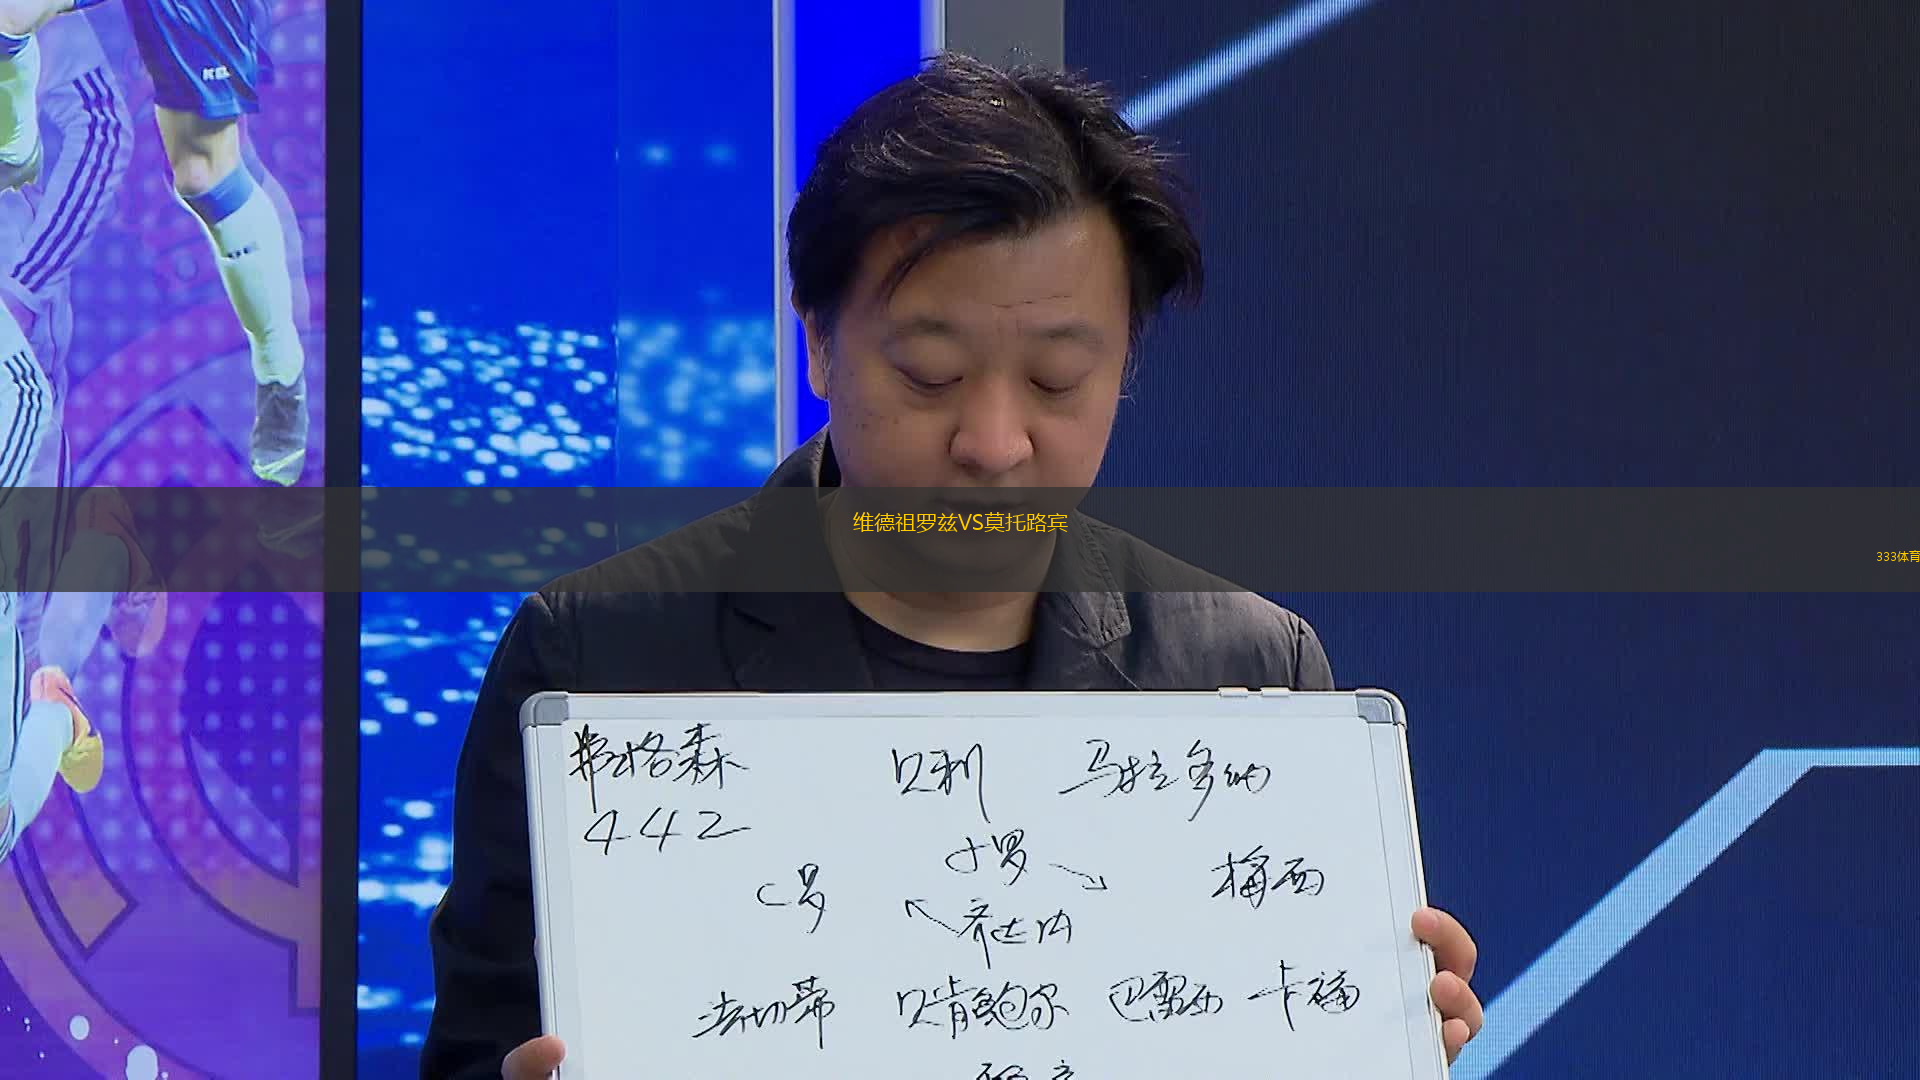 维德祖罗兹VS莫托路宾
333体育
弗格森 贝利 马拉多纳
442
小罗
C罗 梅西
齐达内
法切蒂 贝肯鲍尔 巴雷西 卡福